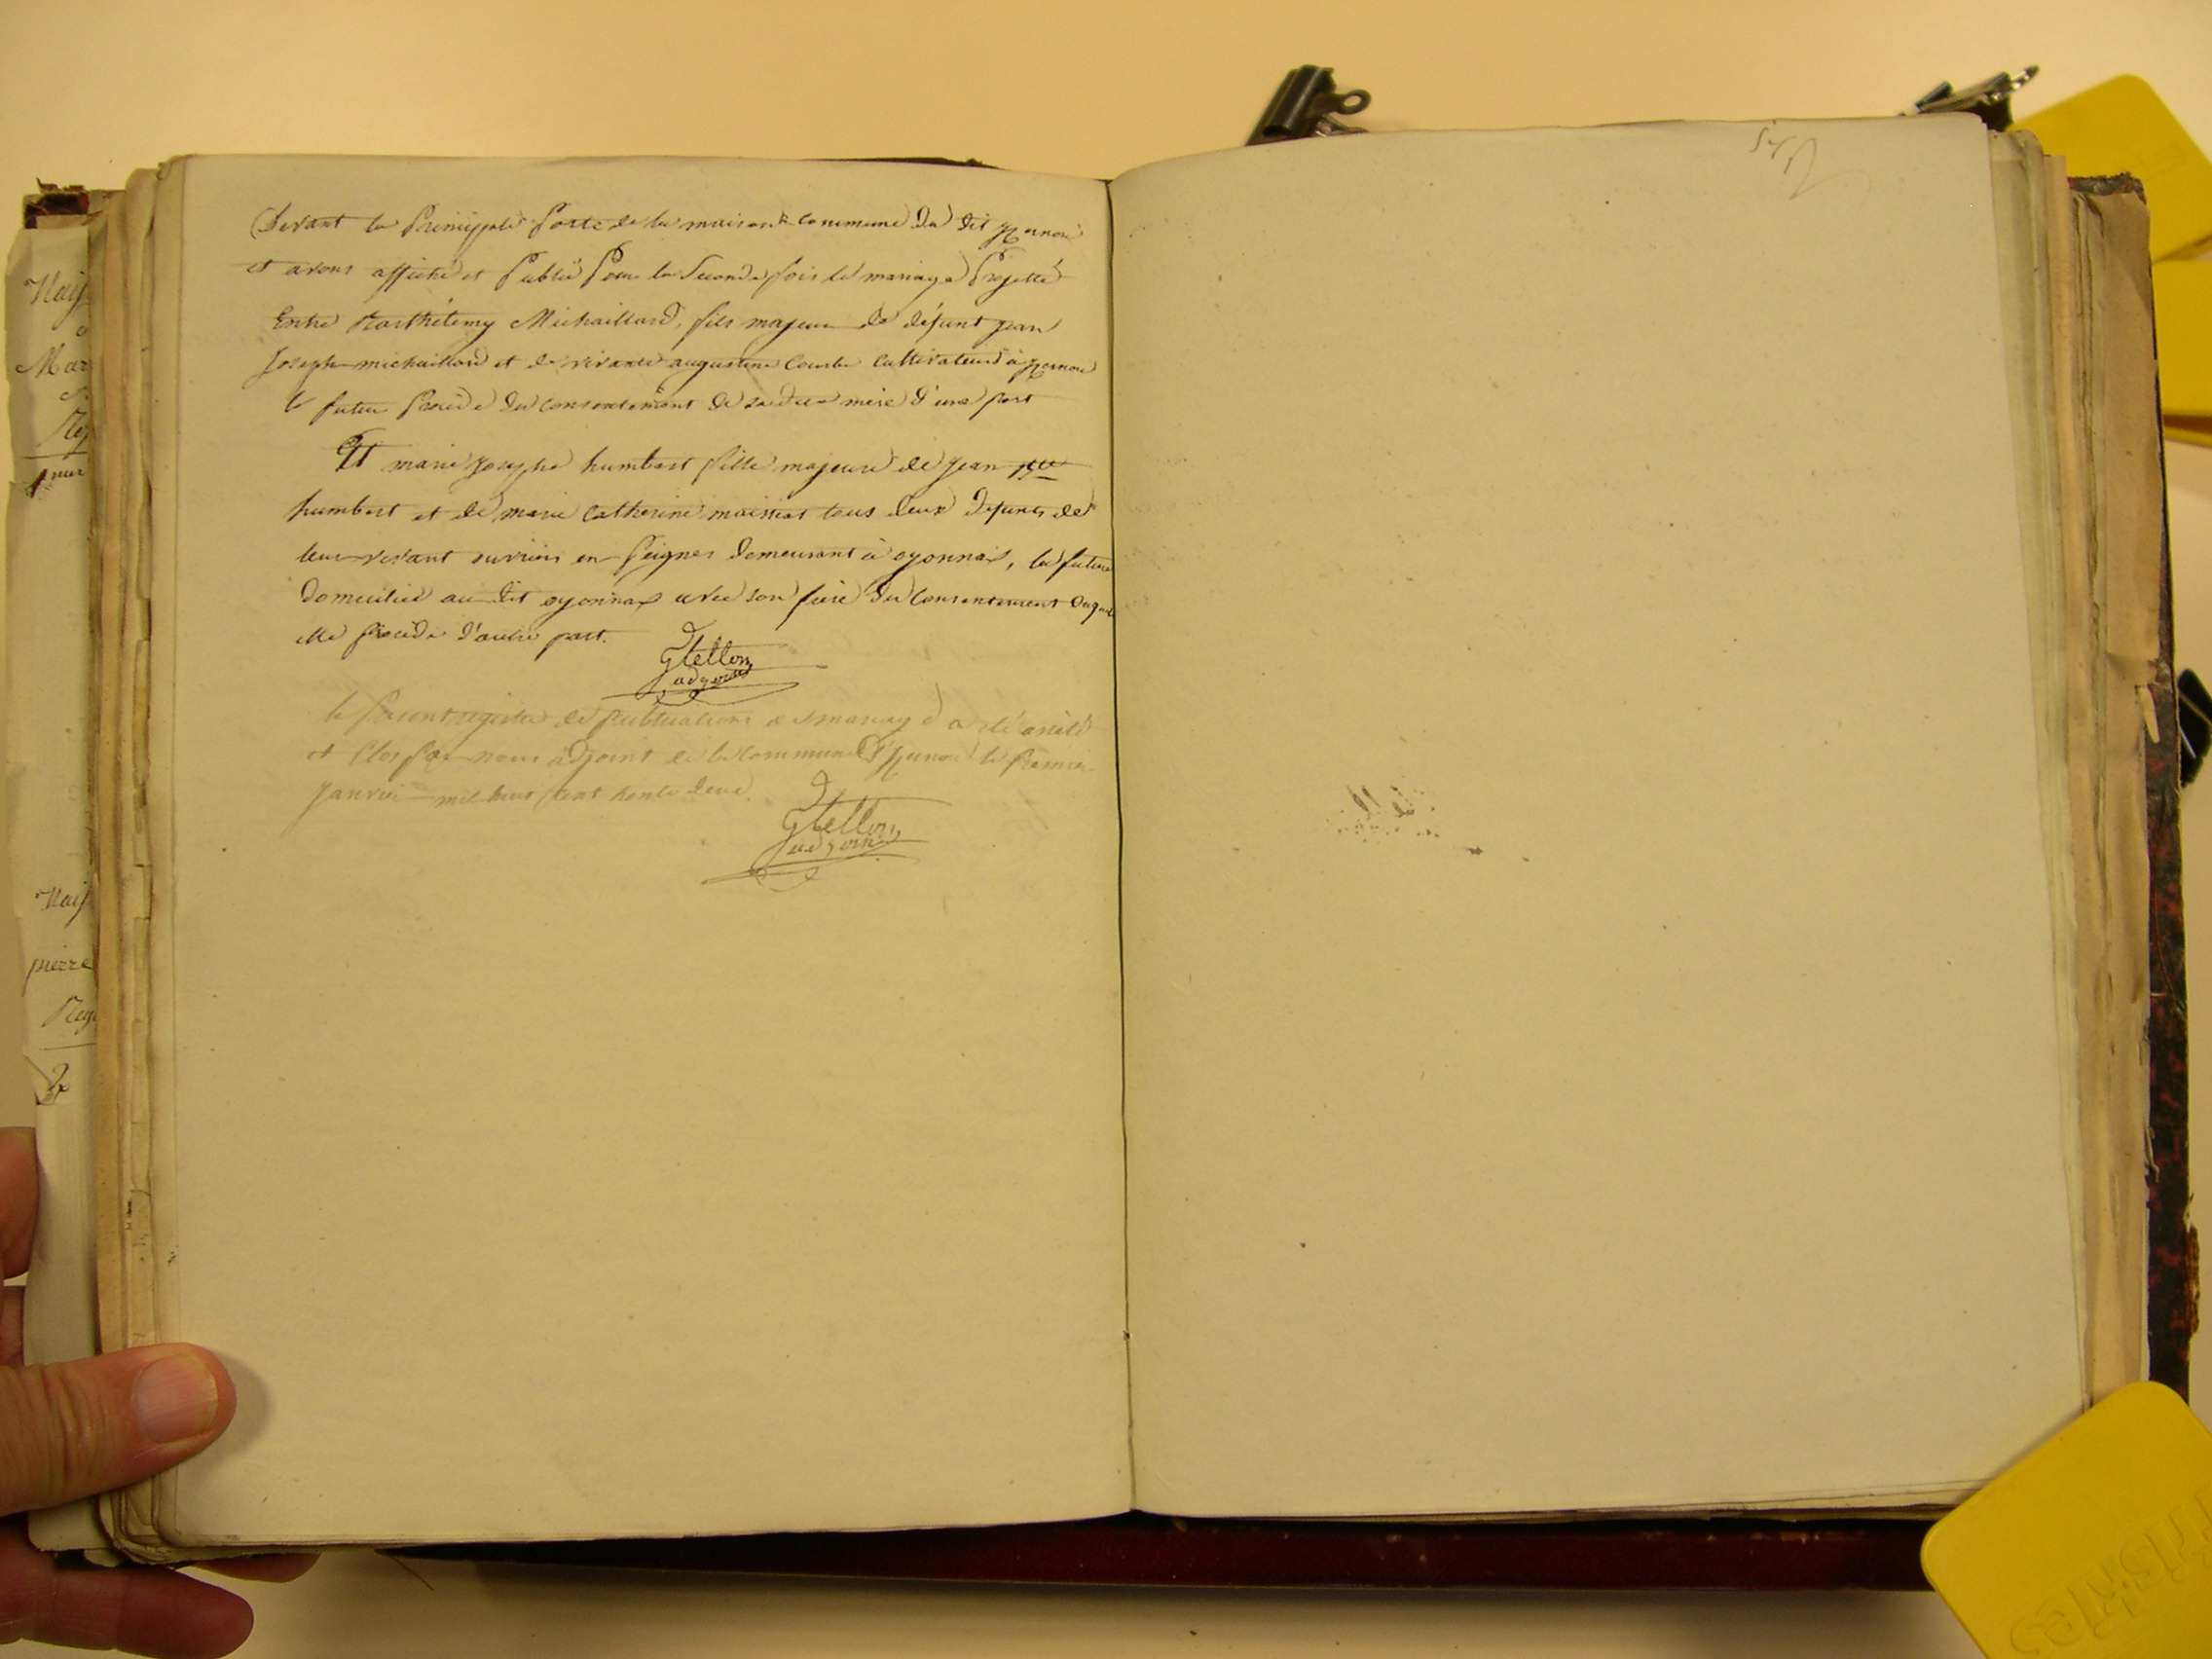 Devant la Principale Porte de la maison commune du dit Hernou
et avons affiché et Publié Pour la Seconde fois le mariage Projetté
Entre Barthélemy Michaillard, fils majeur de défunt jean
Joseph michaillard et de vivante augustine Courbe Cultivateurs à
le futur Procède du Consentement de sadite mère d'une part
Et marie Josephe humbert fille majeure de Jean
humbert et de marie Catherine maissiat tous deux défunts de
leur vivant ouvriers en Peignes demeurant à oyonnax, la future
domiciliée au dit oyonnax avec son frère du Consentement duquel
elle procède d'autre part.
Gtellon
adjoint
le Présent registre de Publications de mariage a été arrêté
et Clos Par nous adjoint de la Commune le Premier
Janvier mil huit Cent trente deux.
Gtellon
adjoint
Mar
pierre
2